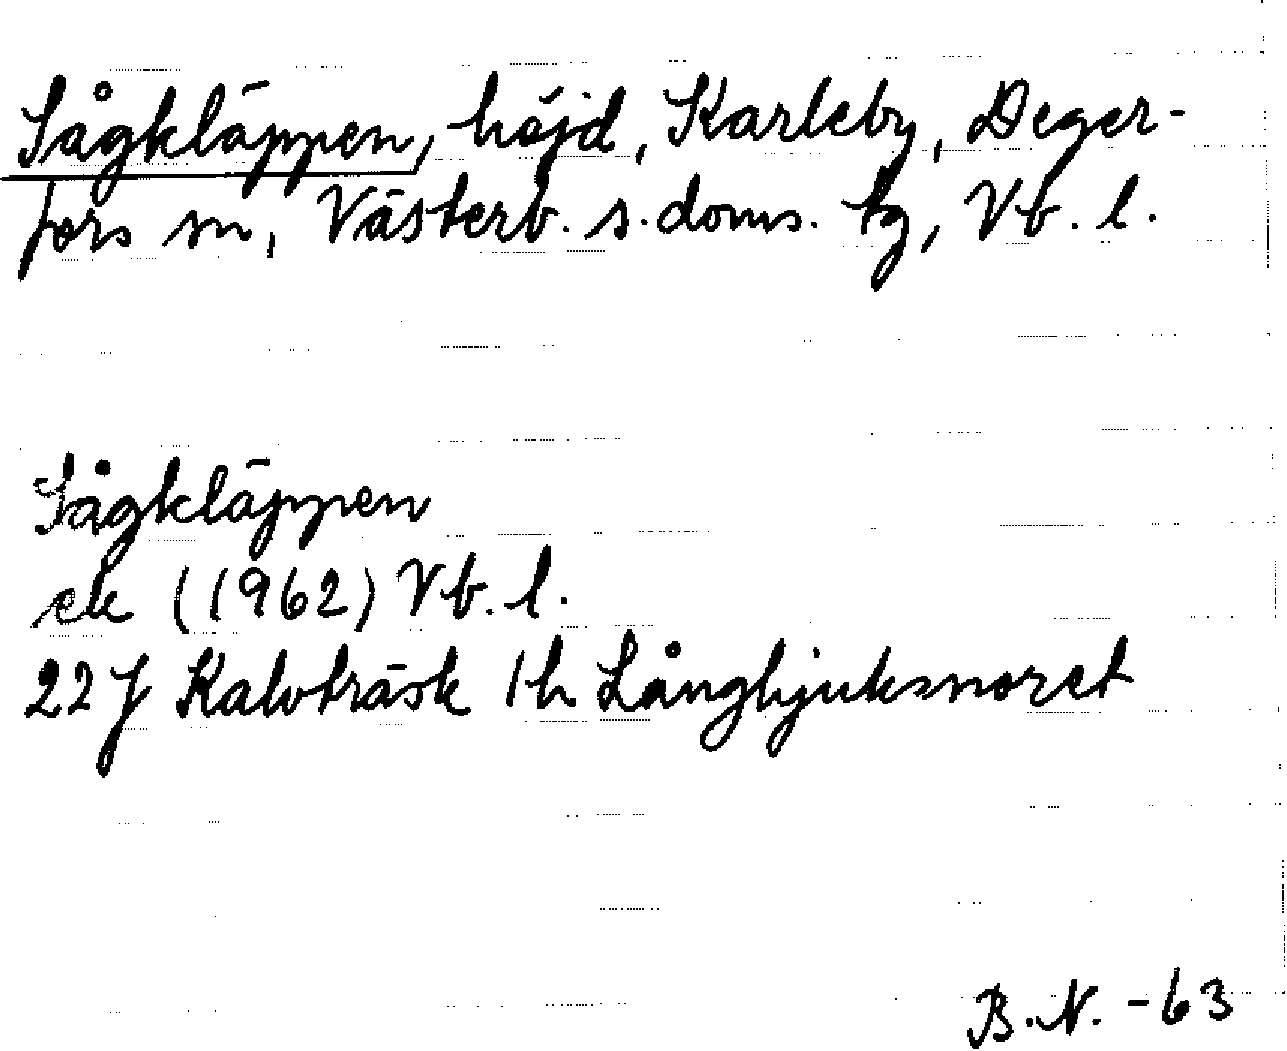 Sågkläppen, höjd, Karleby, Deger-
fors sn, Västerb. s. doms. tg, Vb. l.
Sågkläppen
ek (1962) Vb. l.
22J Kalvträsk 1h Långbjuksnoret
B.N. -63